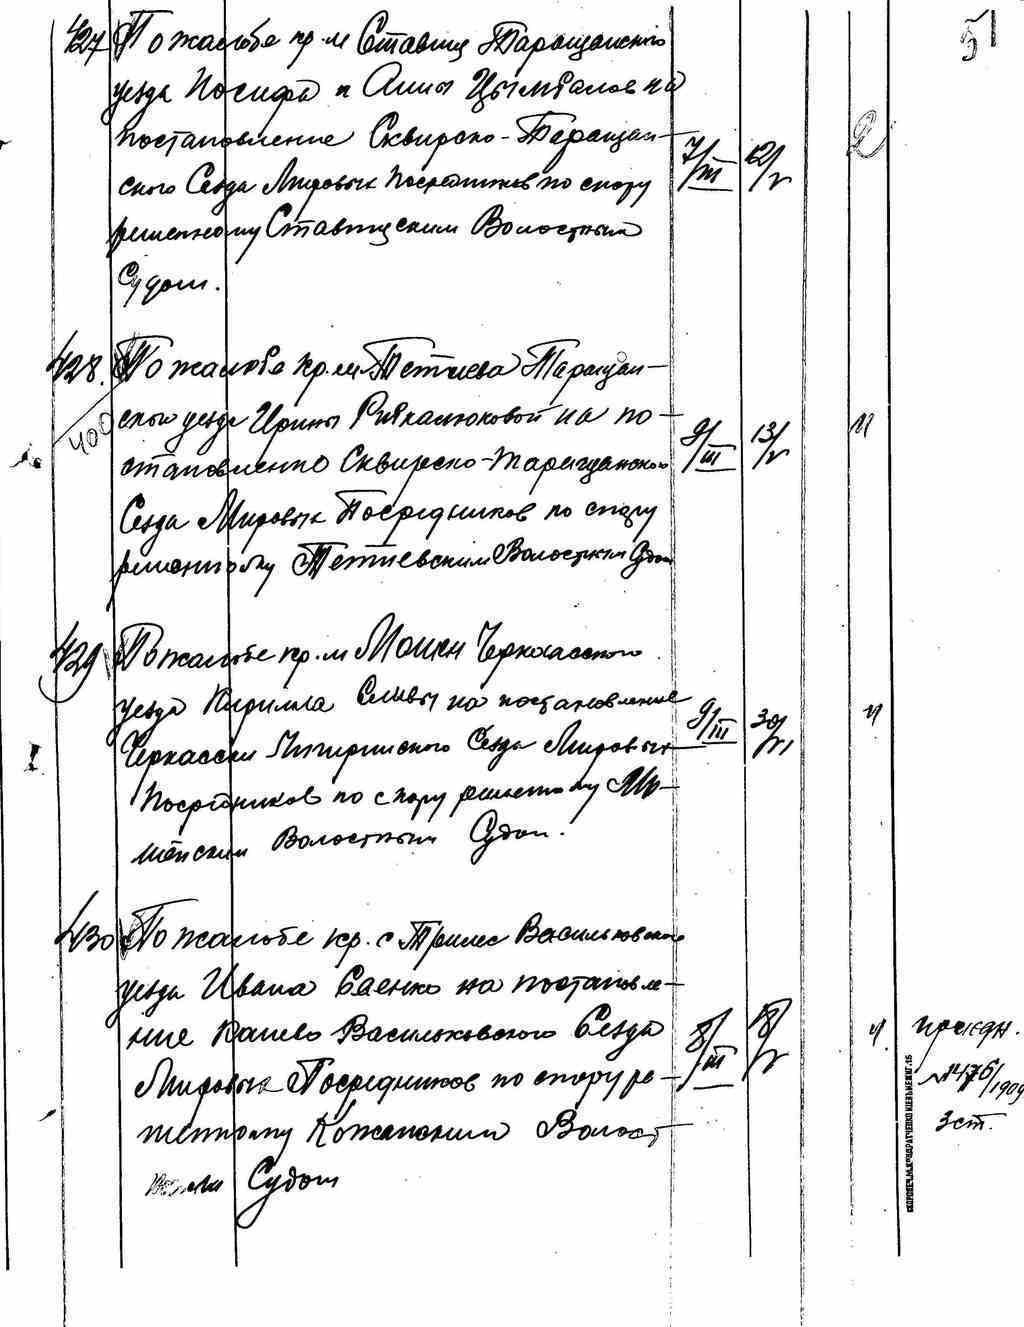 51
427 По жалобе кр. м Ставищ Таращанского
уезда Иосифа и Анны Цымбалов на
постановление Сквирско-Таращан-
ского Сезда Мировых Посредников по спору
решенному Ставищским Волостным
Судом.
7/III 12/V
2
428. По жалобе кр. м Тетиева Таращан-
ского уезда Ирины на по-
становление Сквирско-Таращанского
Сезда Мировых Посредников по спору
решенному Тетиевским Волостным Судом
400
9/III 13/V
429 По жалобе кр. м Черкасского
уезда Кирилла Сливы на постановление
Черкасско Чигиринского Сезда Мировых
Посредников по спору решенному
Волостным Судом.
9/III
430 По жалобе кр. с Трилес Васильковского
уезда Ивана Саенко на постановле-
ние Киево Васильковского Сезда
Мировых Посредников по спору ре-
шенному Кожанским Волост
ным Судом
8/III 18/V
1909
3 ст.